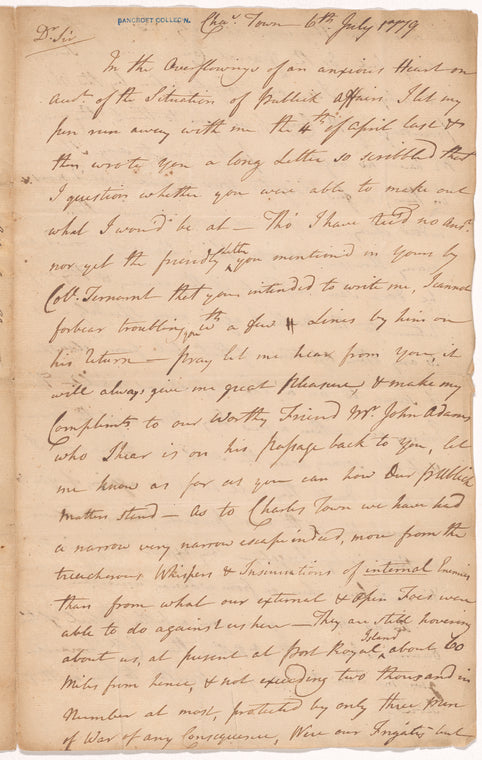 BANCROFT COLLECN.
Chas. Town 6th July 1779
Dr Sir
In the Overflowings of an anxious Heart on
acct. of the Situation of Publick Affairs I let my
pen run away with me the 4th of April last &
then wrote you a long Letter so scribbled that
I question whether you were able to make out
what I wou'd be at — Tho' I have rec'd no Ansr.
nor yet the friendly Letter you mention'd in Yours by
Collo. Ternant that you intended to write me, I cannot
forbear troubling you wth a few Lines by him on
his return — Pray let me hear from you, it
will always give me great Pleasure, & make my
Complimts to our Worthy Friend Mr. John Adams
who I hear is on his Passage back to You, let
me know as far as you can how Our Publick
Matters stand — As to Charles Town we have had
a narrow very narrow escape indeed, more from the
treacherous Whispers & Insinuations of internal Enemies
than from what our external & open Foes were
able to do against us here — They are still hovering
about us, at present at Port Royal Island about 60
Miles from hence, & not exceeding two thousand in
Number at most, protected by only three Men
of War of any Consequence, Were our Frigates but